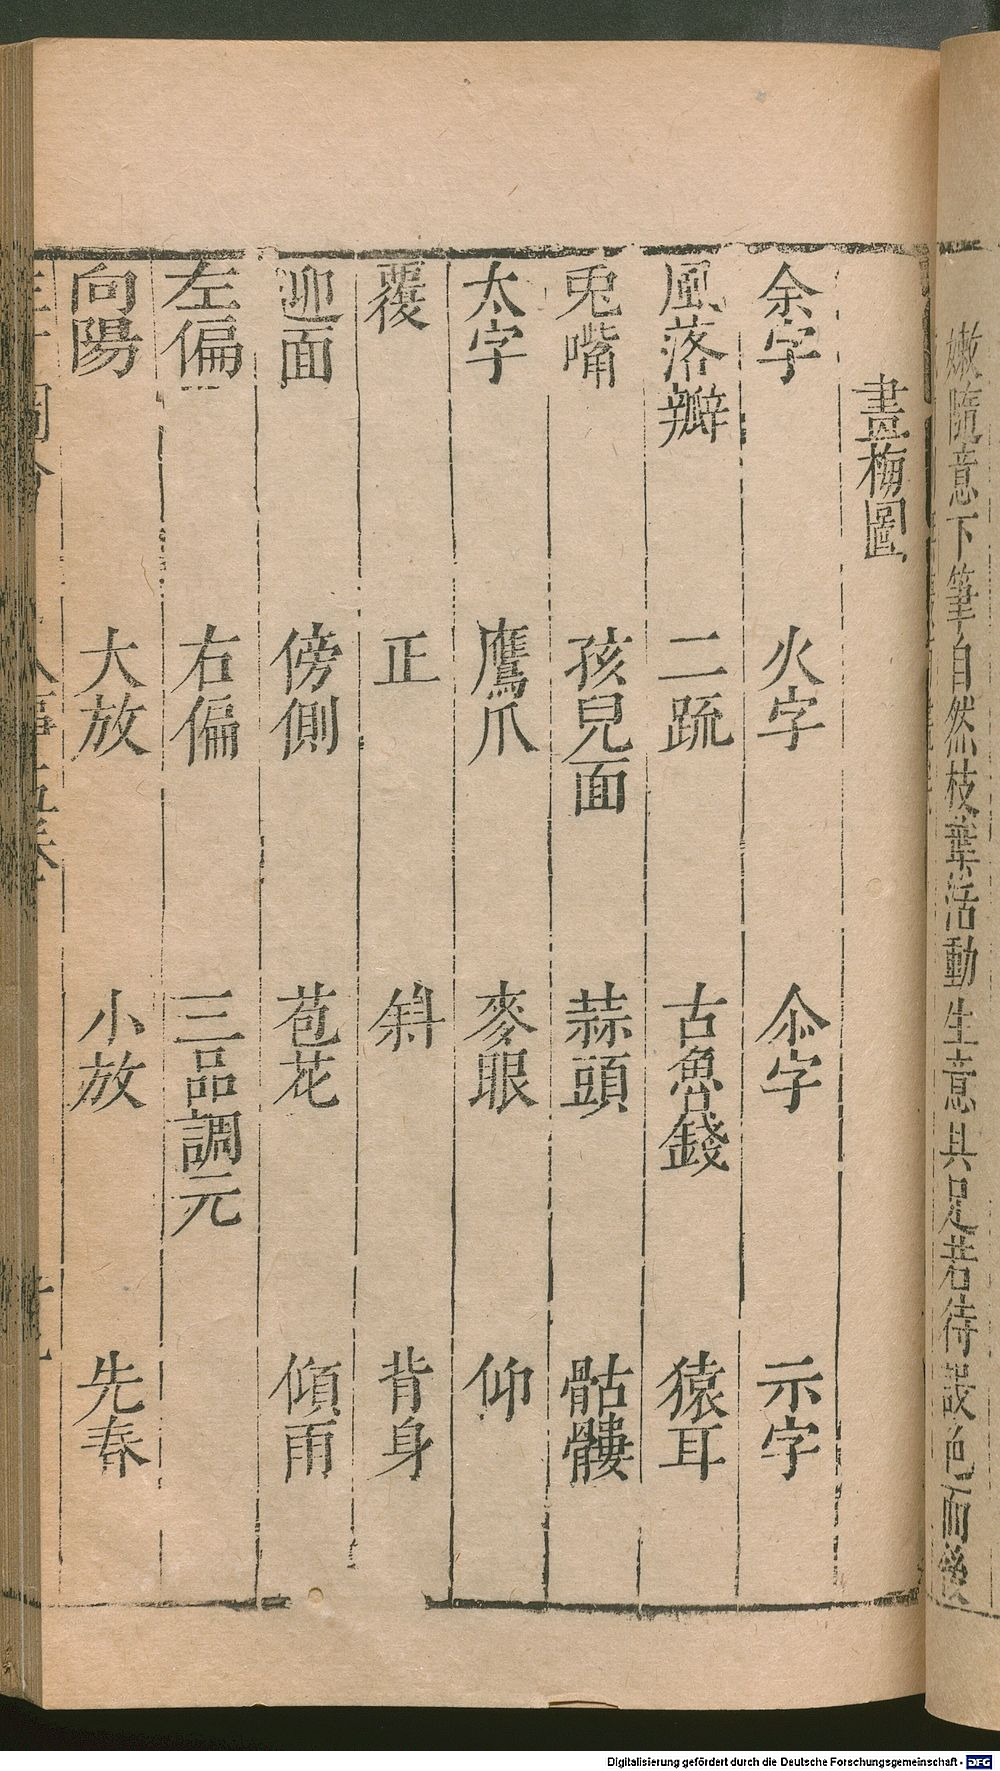 嫩隨意下筆自然枝葉活動生意具足若待設色而後
畫梅圖
余字 火字 尒字 示字
風落瓣 二疏 古魯錢 猿耳
兎嘴 孩兒面 蒜頭 骷髏
太字 鷹爪 麥眼 仰
覆 正 斜 背身
迎面 傍側 苞花 傾雨
左偏 右偏 三品調元
向陽 大放 小放 先春
Digitalisierung gefördert durch die Deutsche Forschungsgemeinschaft - DFG